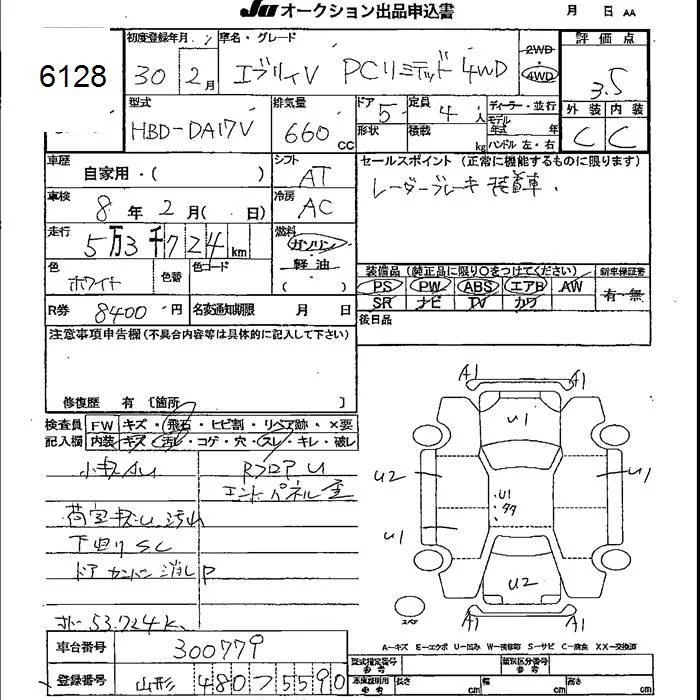 JU オークション出品申込書 月 日 AA
6128
初度登録年月 車名・グレード 2WD 評価点
30 2月 エブリィV PCリミテッド 4WD 4WD 3.5
型式 排気量 ドア 定員 ディーラー・並行 外装 内装
HBD-DA17V 660 CC 5 4 人 モデル年式 年 C C
形状 積載 kg ハンドル 左・右
車歴 自家用・( ) シフト AT セールスポイント (正常に機能するものに限ります)
レーダーブレーキ 装着車.
車検 8年 2月( 日) 冷房 AC
走行 5万3千724km 燃料 ガソリン
軽油
( )
色 ホワイト 色替 色コード
装備品 (純正品に限り○をつけてください) 新車保証書
PS PW ABS エアB AW 有・無
SR ナビ TV カワ
R券 8400円 名変通知期限 月 日 後日品
注意事項申告欄(不具合内容等は具体的に記入して下さい)
修復歴 有 [箇所 ]
検査員 FW キズ・飛石・ヒビ割・リペア跡・×要
記入欄 内装 キズ・汚レ・コゲ・穴・スレ・キレ・破レ
小キズAU RフロアU
エンドパネル
荷室キズU.汚れ
下回りSC
ドア
53.724K
A1 A1
U1
U2 U1
U1
U1
U2
スペアー
A1 A1
A-キズ E-エクボ U-凹み W-板修跡 S-サビ C-腐食 XX-交換済
車台番号 300779
登録番号 山形 480 そ 5590
型式指定番号 参考 類別区分番号 参考
車庫証明用 参考 長さ cm 幅 cm 高さ cm